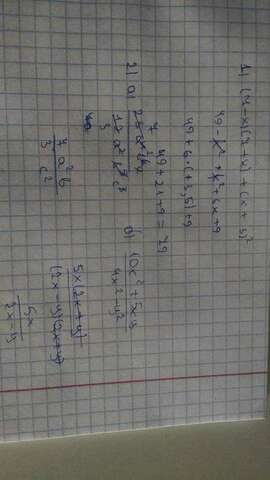 1) (7-x)(7+x)+(x+3)²
49-x²+x²+6x+9
49+6·(+3,5)+9
49+21+9=79
2) а)
7
3
7a²b
3c²
б) 10x²+5xy
4x²-y²
5x(2x+y)
(2x-y)(2x+y)
5x
2x-y